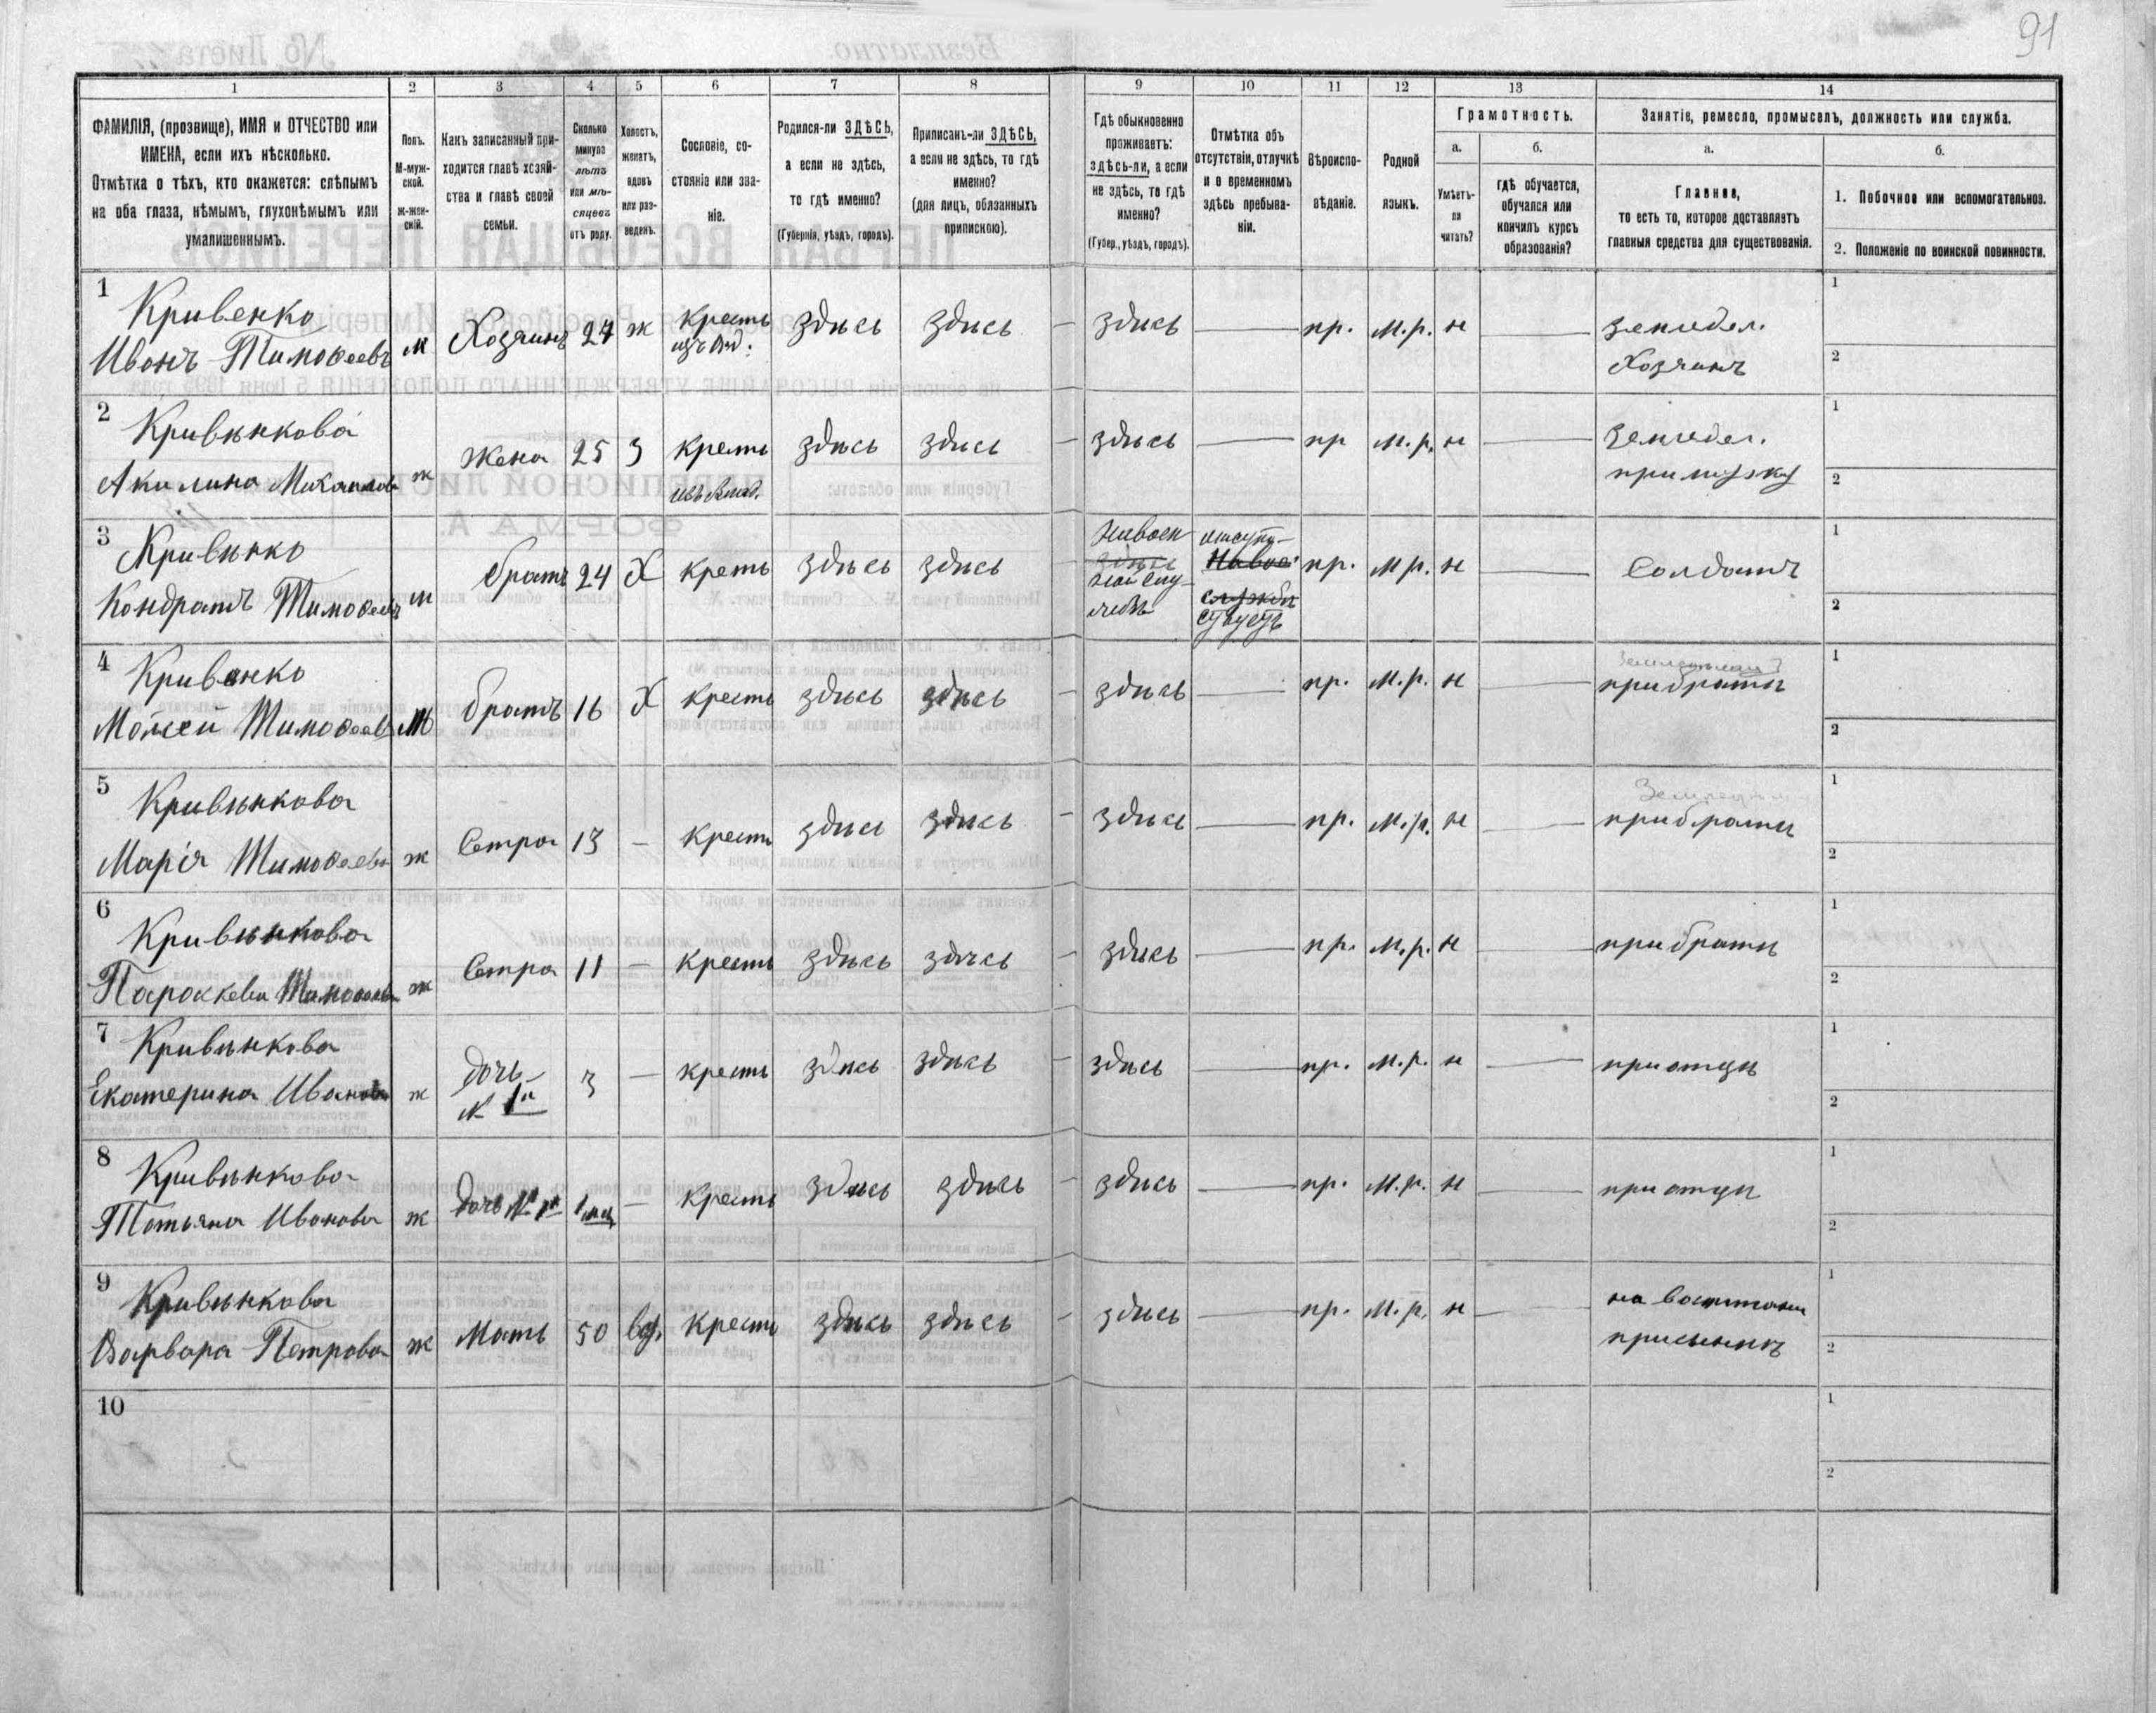 91
1 2 3 4 5 6 7 8 9 10 11 12 13 14
ФАМИЛІЯ, (прозвище), ИМЯ и ОТЧЕСТВО или
ИМЕНА, если ихъ нѣсколько.
Отмѣтка о тѣхъ, кто окажется: слѣпымъ
на оба глаза, нѣмымъ, глухонѣмымъ или
умалишеннымъ.
Полъ.
М-муж-
ской.
ж-жен-
скій.
Какъ записанный при-
ходится главѣ хозяй-
ства и главѣ своей
семьи.
Сколько
минуло
лѣтъ
или мѣ-
сяцевъ
отъ роду.
Холостъ,
женатъ,
вдовъ
или раз-
веденъ.
Сословіе, со-
стояніе или зва-
ніе.
Родился-ли ЗДѢСЬ,
а если не здѣсь,
то гдѣ именно?
(Губернія, уѣздъ, городъ).
Приписанъ-ли ЗДѢСЬ,
а если не здѣсь, то гдѣ
именно?
(для лицъ, обязанныхъ
припискою).
Гдѣ обыкновенно
проживаетъ:
здѣсь-ли, а если
не здѣсь, то гдѣ
именно?
(Губер., уѣздъ, городъ).
Отмѣтка объ
отсутствіи, отлучкѣ
и о временномъ
здѣсь пребыва-
ніи.
Вѣроиспо-
вѣданіе.
Родной
языкъ.
Грамотность.
а.
Умѣетъ-
ли
читать?
б.
гдѣ обучается,
обучался или
кончилъ курсъ
образованія?
Занятіе, ремесло, промыселъ, должность или служба.
а.
Главное,
то есть то, которое доставляетъ
главныя средства для существованія.
б.
1. Побочное или вспомогательное.
2. Положеніе по воинской повинности.
1
Кривенко
Иванъ Тимоѳеевъ м Хозяинъ 24 ж Крестъ здѣсь здѣсь здѣсь пр. м.р. н земледел.
Хозяинъ
1
2
2
Кривѣнкова
Акилина ж жена 25 З крестъ здѣсь здѣсь здѣсь пр м.р. н земледел.
при мужу
1
2
3
Кривѣнко
Кондратъ Тимоѳеевъ м братъ 24 Х крестъ здѣсь здѣсь здѣсь пр. м р. н Солдатъ
1
2
4
Кривенко
Тимоѳеевъ м братъ 16 Х крестъ здѣсь здѣсь здѣсь пр. м.р. н
при братѣ
1
2
5
Кривѣнкова
Марія Тимоѳеева ж Сетра 13 — крестъ здѣсь здѣсь здѣсь пр. м.р. н
при братѣ
1
2
6
Кривѣнкова
Тимоѳеева ж Сетра 11 — крестъ здѣсь здѣсь здѣсь пр. м.р. н при братѣ
1
2
7
Кривѣнкова
Екатерина Иванова ж дочь
№ 1й 3 — крестъ здѣсь здѣсь здѣсь пр. м.р. н при отцѣ
1
2
8
Кривѣнкова
Татьяна Иванова ж дочь № 1й 1 мѣц — крестъ здѣсь здѣсь здѣсь пр. м.р. н при отцѣ
1
2
9
Кривѣнкова
Варвара Петрова ж Мать 50 вд. крестъ здѣсь здѣсь здѣсь пр. м.р. н на
при сынкѣ
1
2
10
1
2